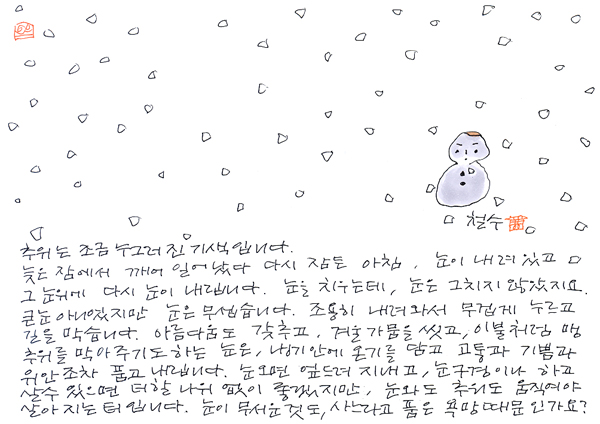 철수
추위는 조금 누그러진 기색입니다.
늦은 잠에서 깨어 일어났다 다시 잠든 아침, 눈이 내려 있고
그 눈위에 다시 눈이 내립니다. 눈을 치우는데, 눈은 그치지 않았지요.
큰눈 아니었지만 눈은 무섭습니다. 조용히 내려와서 무겁게 누르고
길을 막습니다. 아름다움도 갖추고, 겨울가뭄을 씻고, 이불처럼 맹
추위를 막아주기도 하는 눈은, 냉기안에 온기를 담고 고통과 기쁨과
위안조차 품고 내립니다. 눈오면 엎드려 지내고, 눈구경이나 하고
살수 있으면 더할 나위 없이 좋겠지만, 눈와도 추위도 움직여야
살아지는 터입니다. 눈이 무서운 것도, 사느라고 품은 욕망 때문인가요?